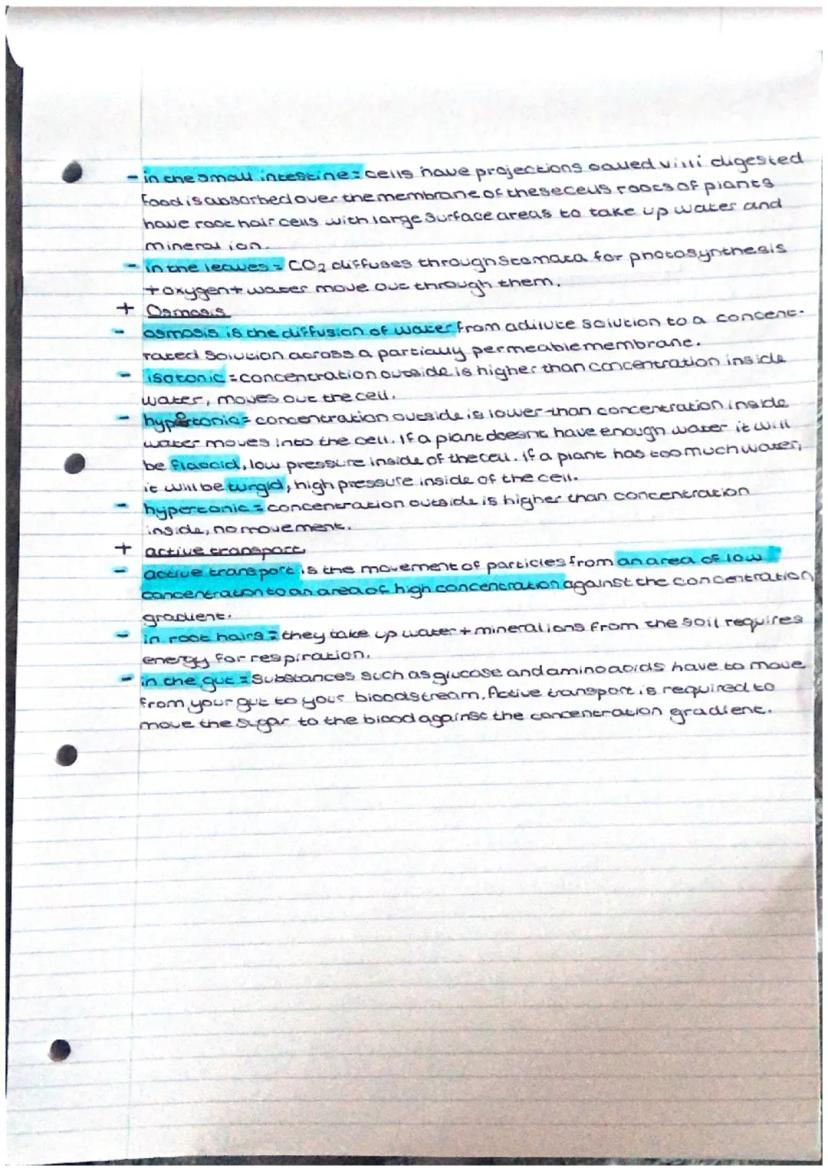 - in the small intestine = cells have projections called villi digested
food is absorbed over the membrane of these cells roots of plants
have root hair cells with large surface areas to take up water and
mineral ion.
- in the leaves = CO2 diffuses through stomata for photosynthesis
+ oxygen + water move out through them.
+ Osmosis
- osmosis is the diffusion of water from a dilute solution to a concent-
rated solution across a partially permeable membrane.
- isotonic = concentration outside is higher than concentration inside
water, moves out the cell.
- hypotonic = concentration outside is lower than concentration inside
water moves into the cell. If a plant doesnt have enough water it will
be flaccid, low pressure inside of the cell. If a plant has too much water,
it will be turgid, high pressure inside of the cell.
- hypertonic = concentration outside is higher than concentration
inside, no movement.
+ active transport
- active transport is the movement of particles from an area of low
concentration to an area of high concentration against the concentration
gradient.
- in root hairs = they take up water + mineral ions from the soil requires
energy for respiration.
- in the gut = Substances such as glucose and amino acids have to move
from your gut to your bloodstream. Active transport is required to
move the sugar to the blood against the concentration gradient.